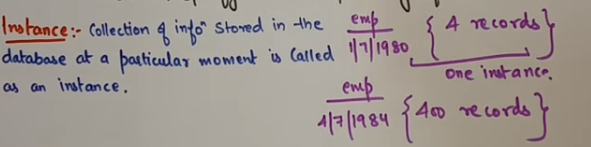 Instance:- Collection of infoⁿ stored in the
database at a particular moment is called
as an instance.
emp
1/7/1980 { 4 records }
one instance.
emp
4/7/1984 { 400 records }